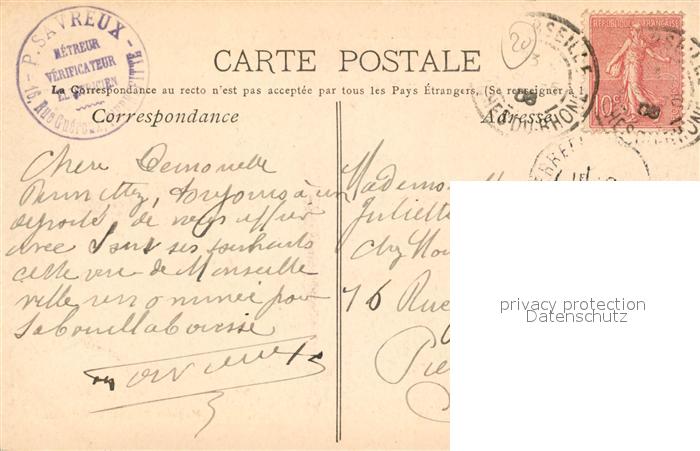 P. SAVREUX
MÉTREUR
VÉRIFICATEUR
16, Rue
CARTE POSTALE
20
La Correspondance au recto n'est pas acceptée par tous les Pays Étrangers. (Se renseigner à l
Correspondance
Adresse
REPUBLIQUE FRANÇAISE
10c
MARSEILLE
BCHES DU RHONE
08
Chère Demoiselle
Permettez, toujours à un
de vous offrir
avec ses souhaits
cette vue de Marseille
ville renommée pour
sa bouillabaisse
Juliette
chez
76 Rue
privacy protection
Datenschutz